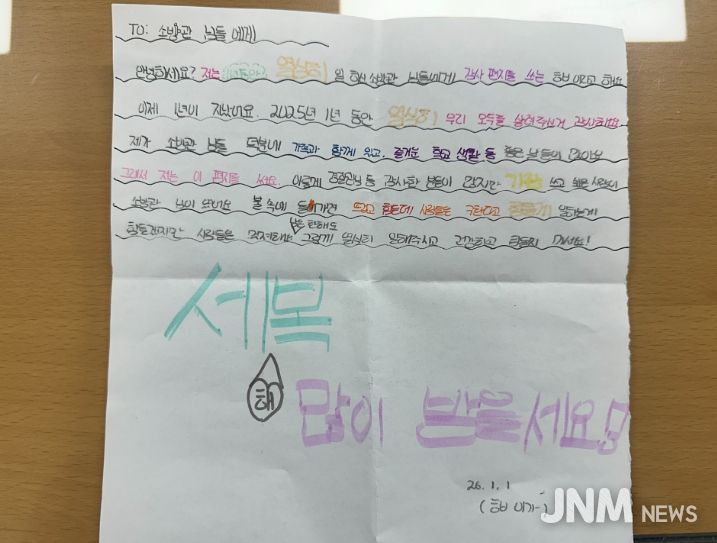 TO: 소방관 님들에게
안녕하세요? 저는 열심히 일 하신 소방관 님들에게 감사 편지를 쓰는 라고 해요.
이제 1년이 지났어요. 2025년 1년 동안 열심히 우리 모두를 살려주셔서 감사해요.
제가 소방관 님들 덕분에 가족과 함께 있고, 즐거운 학교 생활 등 좋은 날들이 많아요
그래서 저는 이 편지를 써요. 이렇게 경찰관님 등 감사한 분들이 많지만 가장 쓰고 싶은 사람이
소방관 님이 뜨거운 불 속에 들어가면 뜨겁고 힘든데 사람들을 구한다고 힘들게 일하는게
힘들겠지만 사람들은 걱정해요 그렇게 열심히 일해주시고 건강하고 마세요!
새복
해
많이 받을세요!
26. 1. 1
JNM NEWS